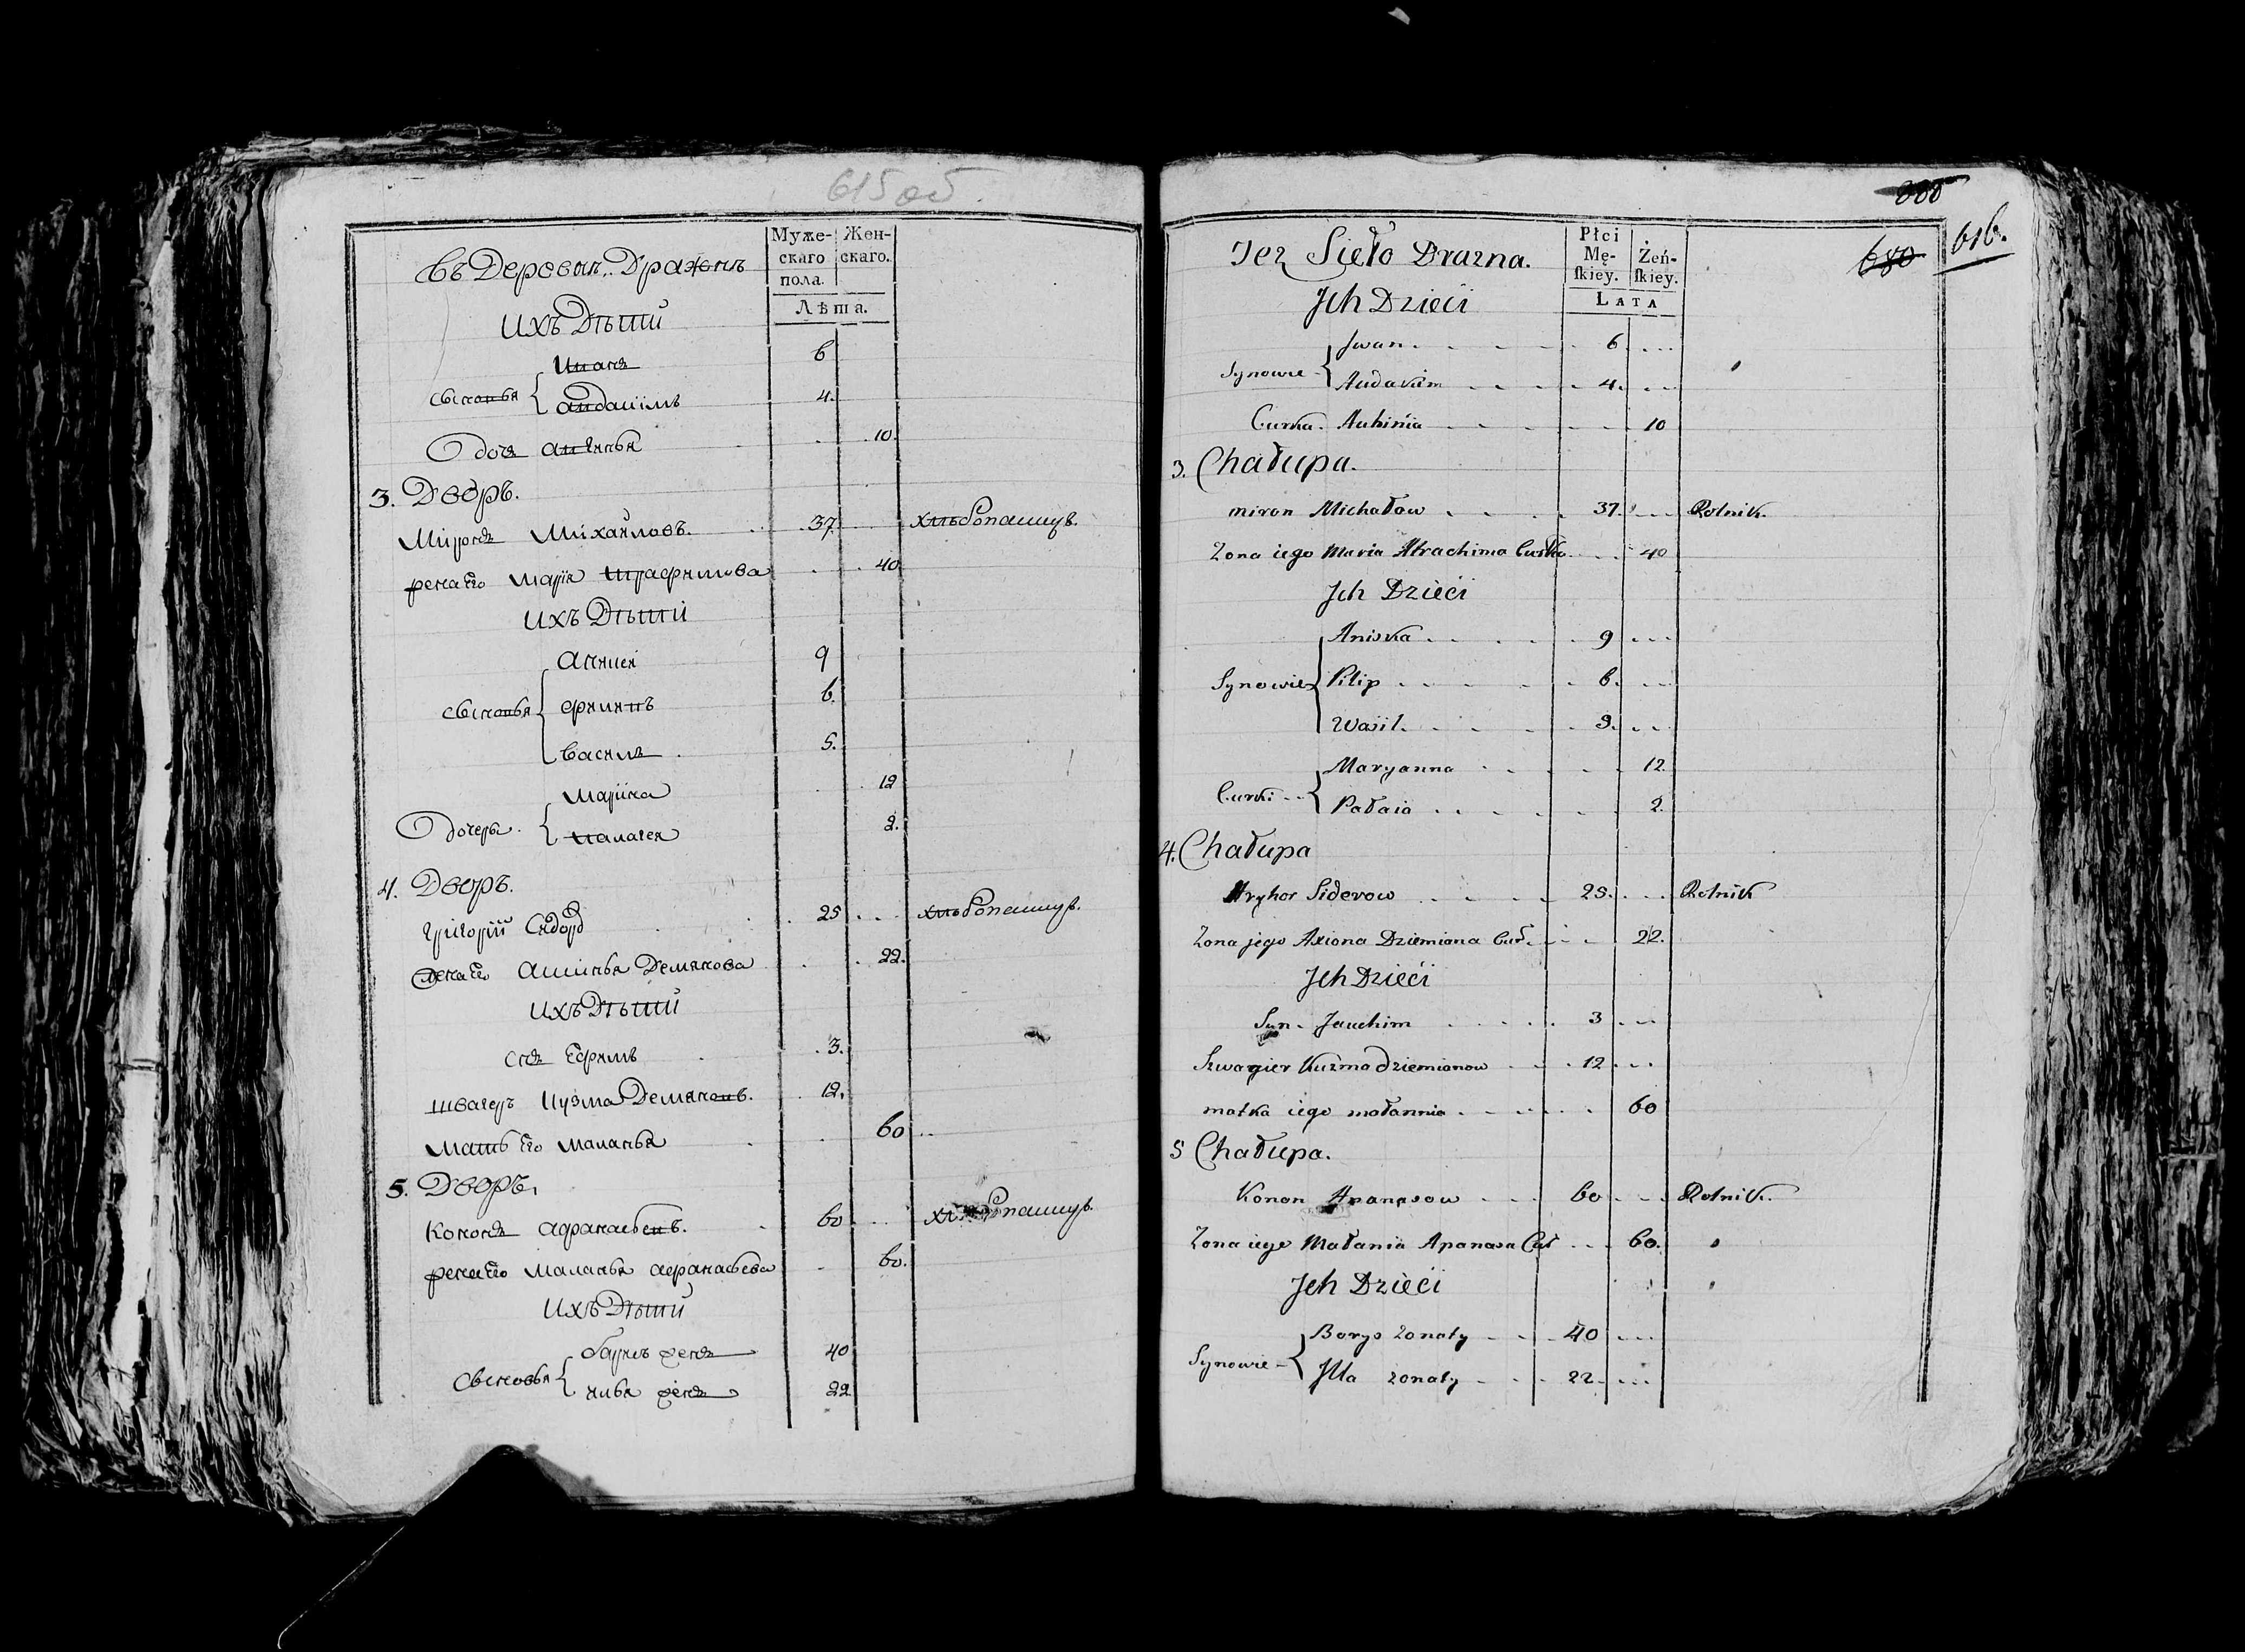 615 об.
Въ Деревнѣ Дражнѣ
Муже-
скаго
пола.
Жен-
скаго.
Лѣта.
Ихъ Дѣти
Иванъ 6
Сыновья
авдакимъ 4.
Дочь 10.
3. Дворъ.
Миронъ Михайловъ. 37 хлѣбопашецъ.
жена его Марiя 40
Ихъ Дѣти
9
Сыновья филипъ 6.
Василь 5.
Марiина 12
Дочери.
Палагея 2.
4. Дворъ.
Григорiй Сидор 25 хлѣбопашецъ.
жена его Демянова 22.
Ихъ Дѣти
Сынъ Ефимъ 3.
швагеръ Кузма Демяновъ. 12.
Мать его Маланья 60
5. Дворъ.
Кононъ афанасьевъ. 60 хлѣбопашецъ.
жена его Маланья афанасьева 60.
Ихъ Дѣти
женъ 40
Сыновья
илья женъ 22
680
616.
Tez Sieło Drazna.
Płci
Mę-
ſkiey.
Żeń-
ſkiey.
Lata
Jch Dzieci
Jwan 6
Synowie
Audakim 4.
Curka. Auhinia 10
3. Chałupa.
miron Michałow 37. Rolnik.
Zona iego Maria Atrachima Curka 40
Jch Dzieci
Aniska 9
Synowie Pilip 6.
Wasil. 3.
Maryanna 12.
Curki
Pałaia 2.
4. Chałupa
Hryhor Siderow 25. Rolnik
Zona jego Axiona Dziemiana Cur. 22.
Jch Dzieci
Sun. Jauchim 3
Szwagier Kuzma dziemianow 12
matka iego małannia 60
5 Chałupa.
Konon Apanasow 60 Rolnik.
Zona iego Małania Apanasa Cur 60.
Jch Dzieci
Borys zonaty 40
Synowie
Jlla zonaty 22